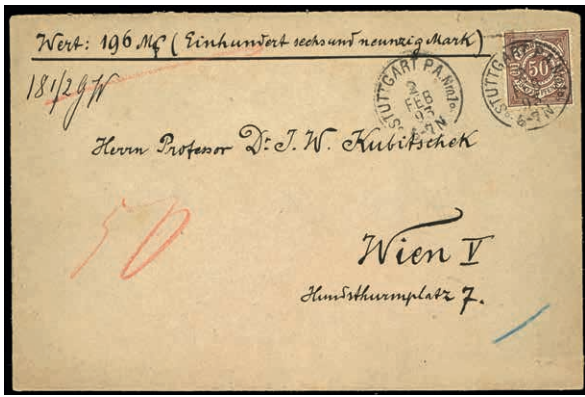 Wert: 196 Mk (Einhundert sechs und neunzig Mark)
18 1/2 g
STUTTGART P.A.
FEB
93
6-7 N
50
STUTTGART P.A.
6-7 N
Herrn Professor Dr. J. W. Kubitschek
50
Wien V
Hundsthurmplatz 7.